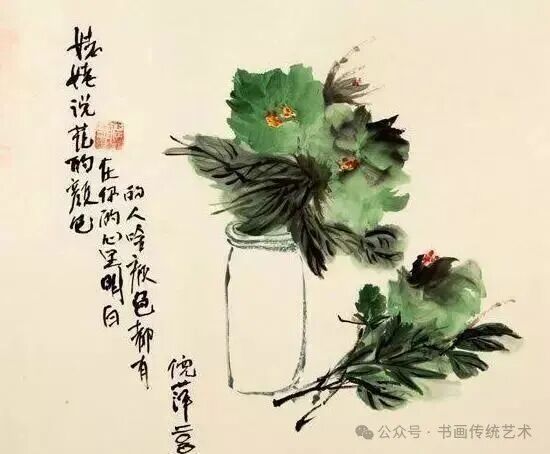 姥姥说花的颜色
在你的心里明白
的人啥颜色都有
倪萍
公众号·书画传统艺术